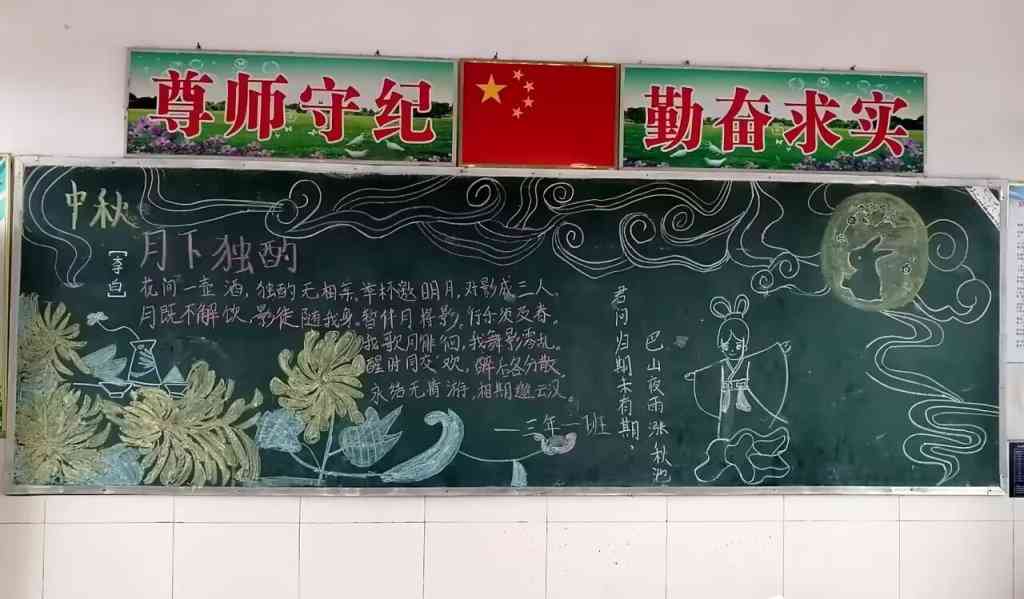 尊师守纪
勤奋求实
中秋
月下独酌
[李白]
花间一壶酒，独酌无相亲。举杯邀明月，对影成三人。
月既不解饮，影徒随我身。暂伴月将影，行乐须及春。
我歌月徘徊，我舞影零乱。
醒时同交欢，醉后各分散。
永结无情游，相期邈云汉。
—三年一班
君问归期未有期，
巴山夜雨涨秋池